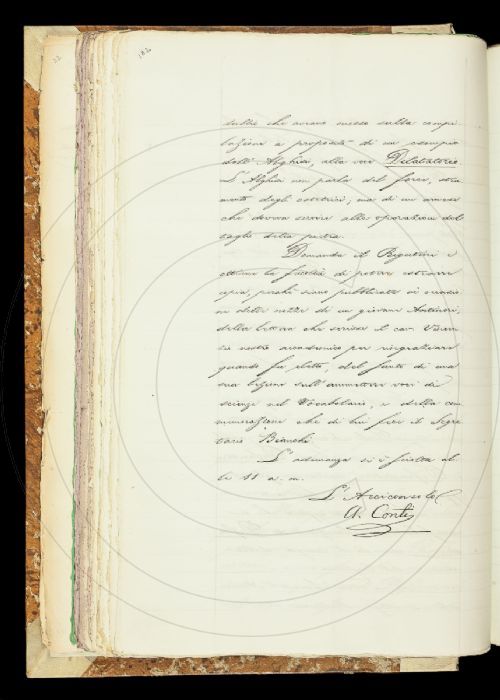 182
dubbi che aveva messo sulla compi
lazione a proposito di un esempio
dell' Alghisi, alla voce Dilatatorio.
L' Alghisi non parla del forcipe, stru
mento degli ostetrici, ma di un arnese
che doveva servire alle operazioni del
taglio della pietra.
Domanda il Rigutini e
ottiene la facoltà di poter estrarre
copia, perchè siano pubblicate in occasio
ne delle nozze di un giovane Antinori,
della lettera che scrisse il cav.
nostro accademico per ringraziare
quando fu eletto, del sunto di una
sua lezione sull' ammettere voci di
scienze nel Vocabolario, e della com
memorazione che di lui fece il Segre
tario Bianchi.
L' adunanza si è sciolta al
le 11 a. m.
L' Arciconsolo
A. Conti